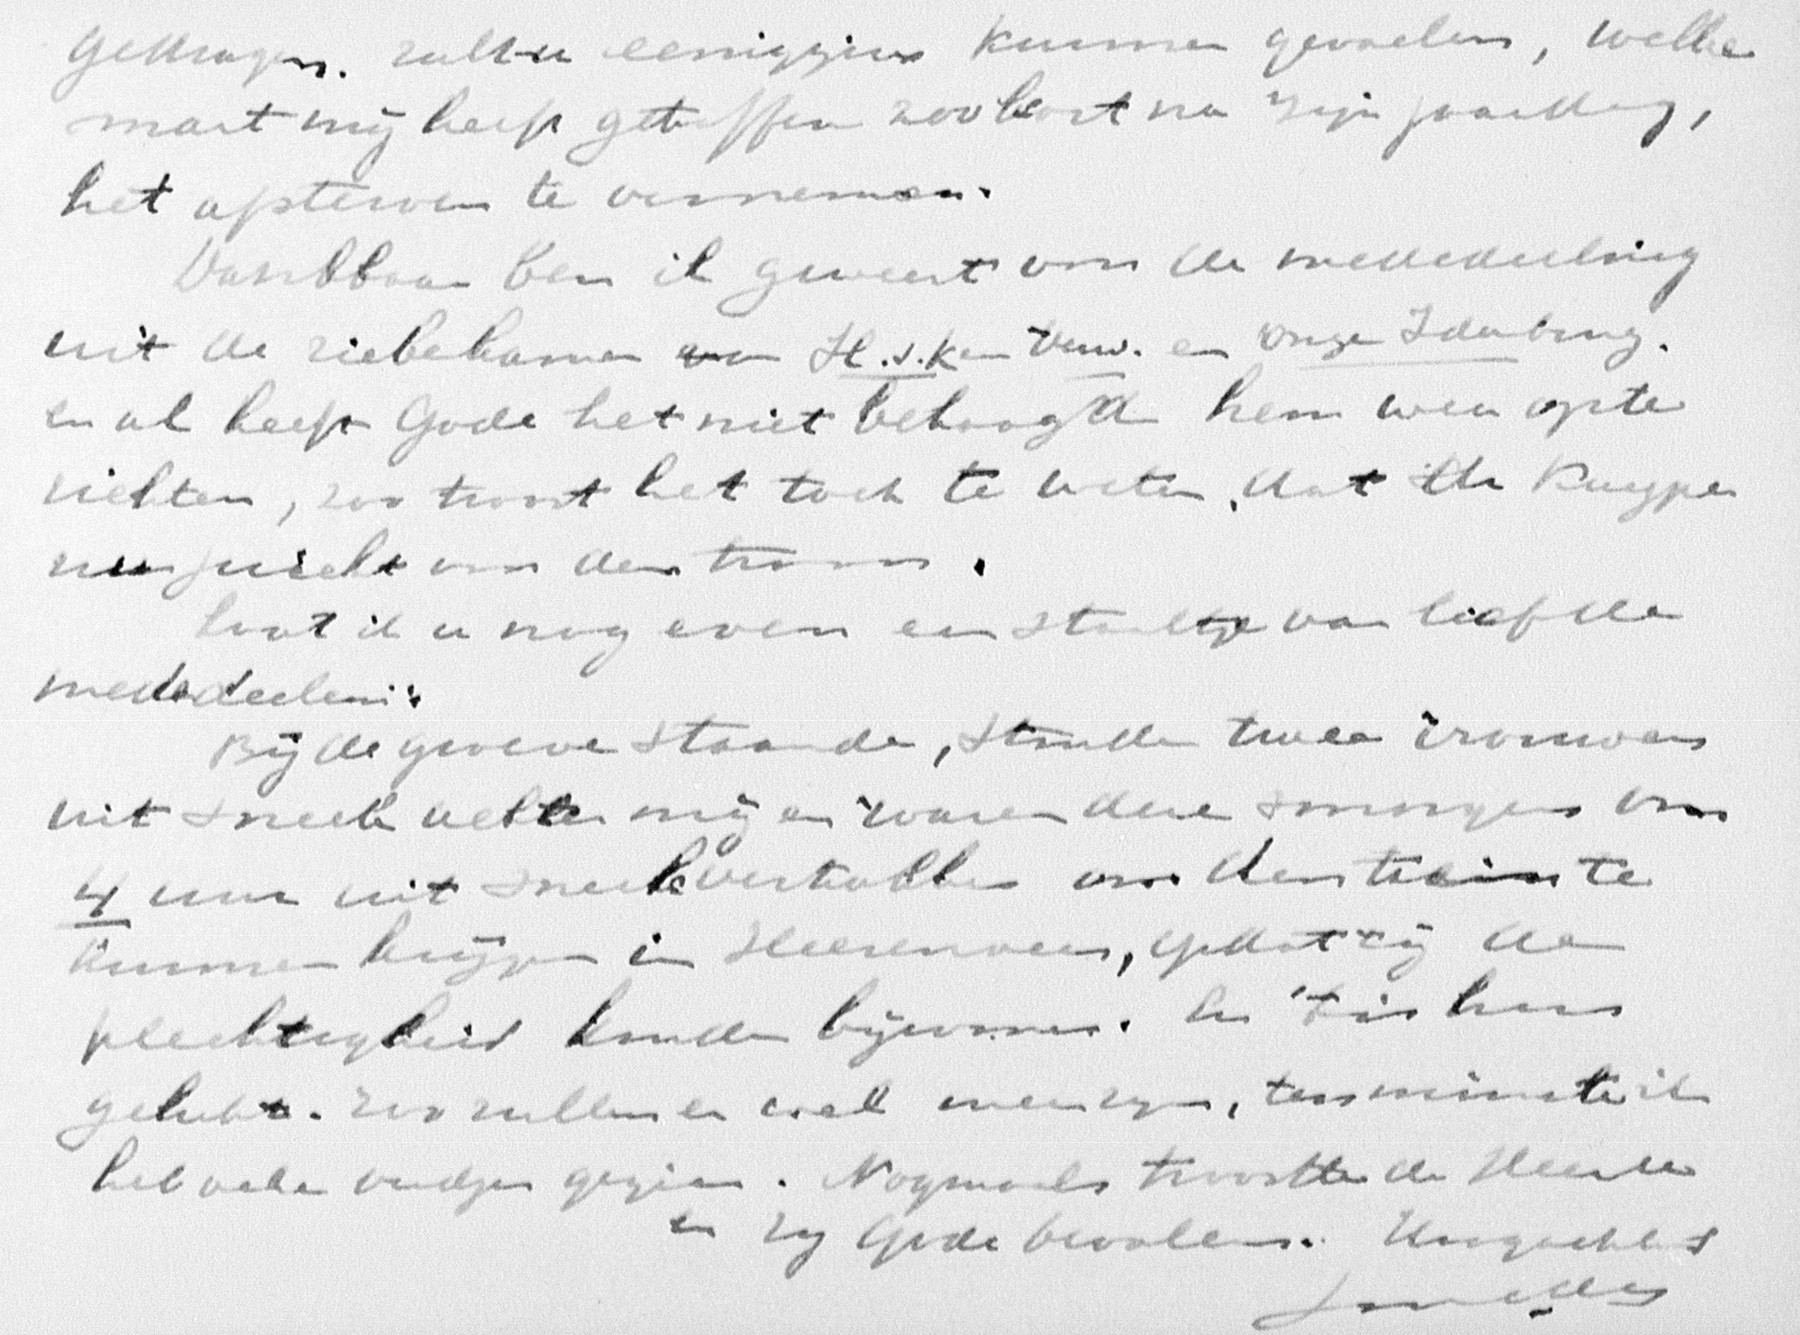 gedragen. zult u eenigzins kunnen gevoelen, welke
smart mij heeft getroffen zoo kort na zijn jaardag,
het afsterven te vernemen.
Dankbaar ben ik geweest voor de mededeeling
uit de ziekekamer van H.s.K en Vrouw. en onze Idenburg.
en al heeft Gode het niet behaagd hem weer op te
richten, zoo troost het toch te weten, dat Dr Kuyper
nu juicht voor den troon.
Laat ik u nog even een staaltje van liefde
mededeelen:
Bij de groeve staande, stonden twee vrouwen
uit Sneek achter mij en waren dien smorgens om
4 uur uit Sneek vertrokken om den trein te
kunnen krijgen in Heerenveen, opdat zij de
plechtigheid konden bijwonen. En 't is hun
gelukt. Zoo zullen er wel meer zijn, tenminste ik
heb vele oudjes gezien. Nogmaals trooste de Heere
en zij Gode bevolen. Hoogachtend